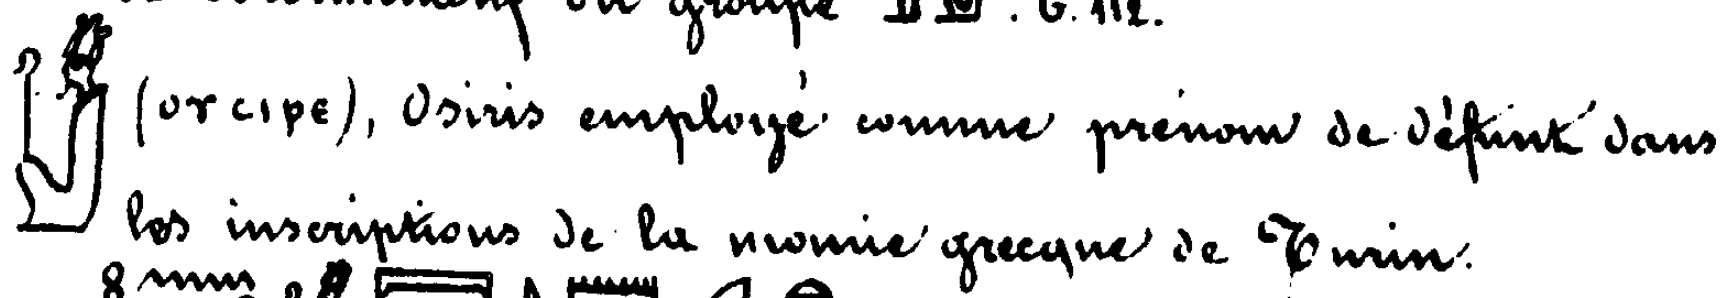 du groupe II IV. G. 112.
(ⲟⲩⲥⲓⲣⲉ), Osiris employé comme prénom de défunt dans
les inscriptions de la momie grecque de Turin.